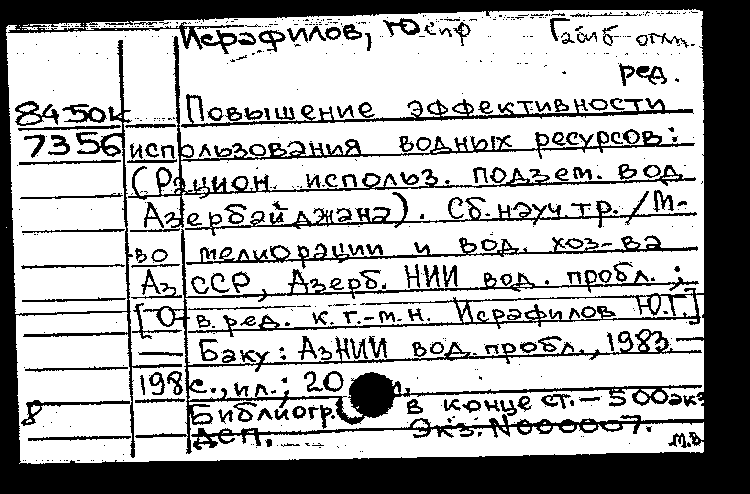 Исрафилов, Юсиф Гаиб отв.
ред.
8450к Повышение эффективности
7356 использования водных ресурсов:
(Рацион. использ. подзем. вод
Азербайджана). Сб. науч. тр. / М-
во мелиорации и вод. хоз-ва
Аз ССР, Азерб. НИИ вод. пробл.;
[Отв. ред. к. г.-м. н. Исрафилов Ю.Г.]
— Баку: АзНИИ вод. пробл., 1983. —
198 с., ил.; 20
Библиогр. в конце ст. — 500экз
8 ДСП. Экз. N000007.
М.В